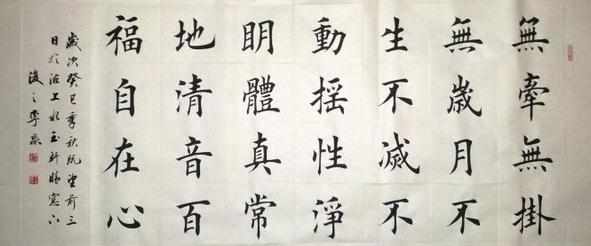 無牽無掛
無歲月不
生不滅不
動摇性淨
明體真常
地清音百
福自在心
歲次癸巳季秋既望前三
日於滬上水玉軒晴窗下